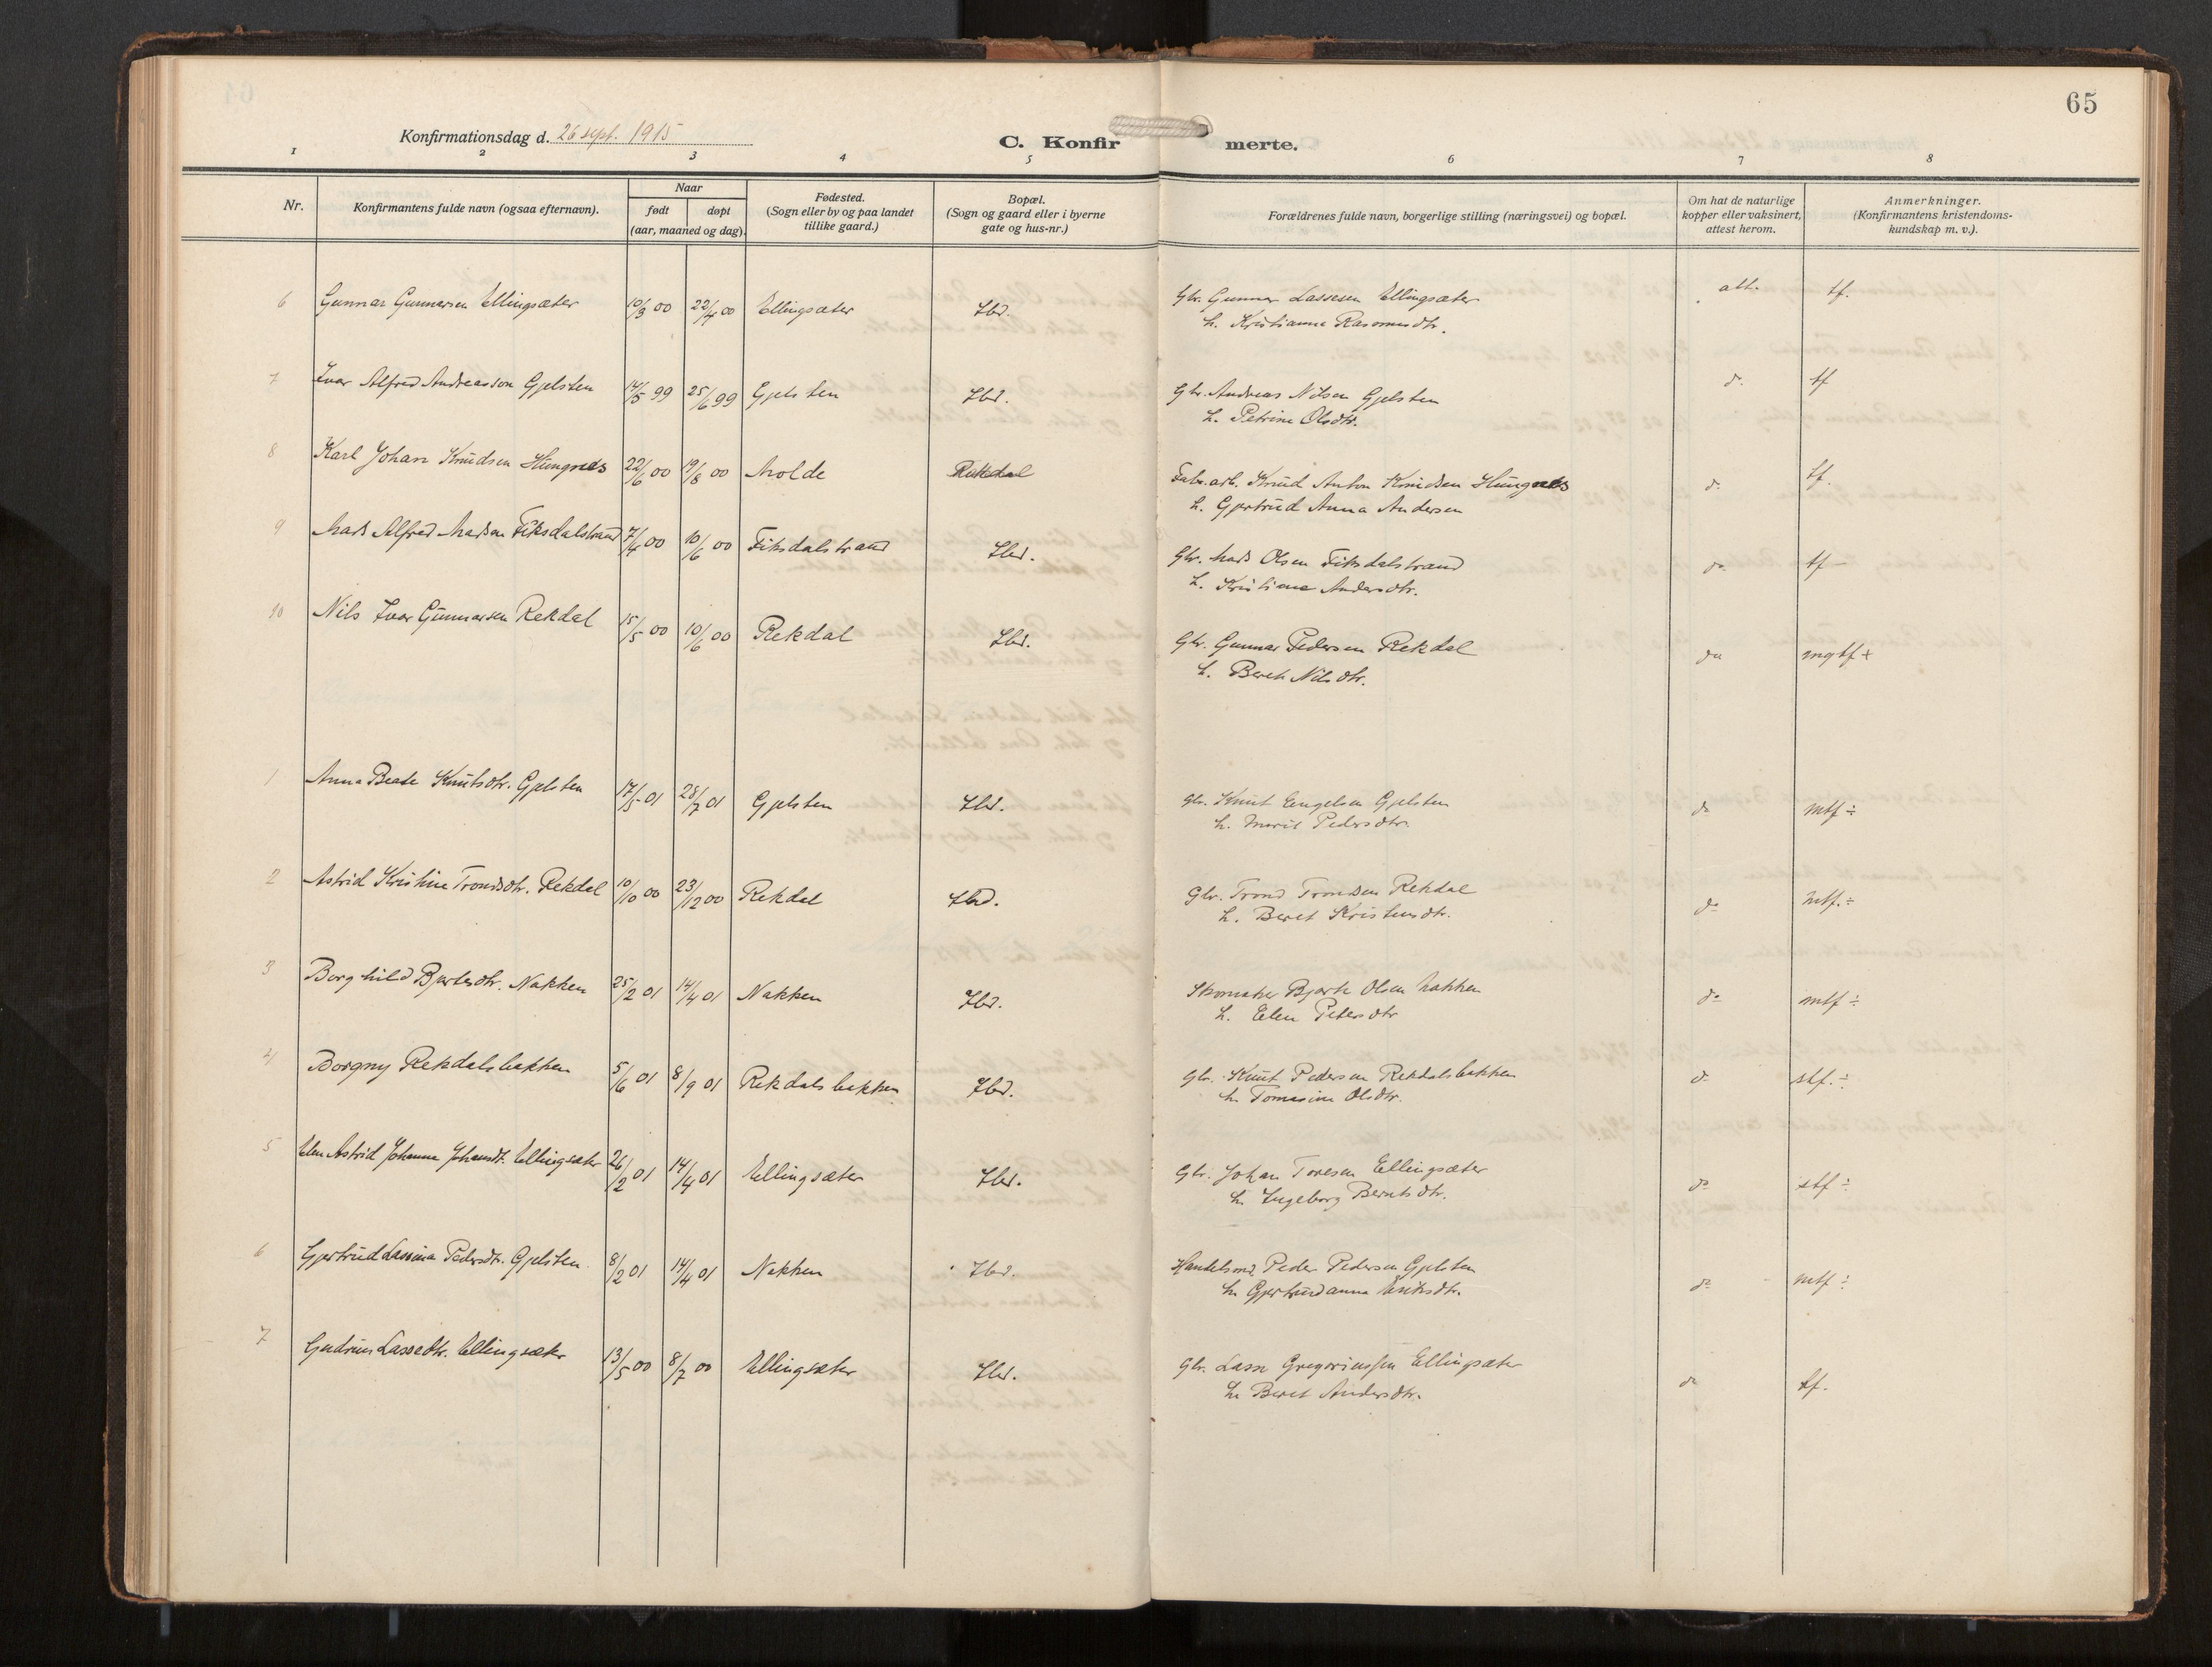 65
Konfirmationsdag d. 26 sept. 1915
C. Konfirmerte.
1 2 3 4 5 6 7 8
Nr.
Konfirmantens fulde navn (ogsaa efternavn).
Naar
født døpt
(aar, maaned og dag).
Fødested.
(Sogn eller by og paa landet
tillike gaard.)
Bopæl.
(Sogn og gaard eller i byerne
gate og hus-nr.)
Forældrenes fulde navn, borgerlige stilling (næringsvei) og bopæl.
Om hat de naturlige
kopper eller vaksinert,
attest herom.
Anmerkninger.
(Konfirmantens kristendoms-
kundskap m. v.).
6 Gunnar Gunnarsen Ellingsæter 10/3 00 22/4 00 Ellingsæter Ibd. Gbr. Gunnar Lassesen Ellingsæter att. tf.
h. Kristianna Rasmusdtr.
7 Ivar Alfred Andreasson Gjelsten 14/5 99 25/6 99 Gjelsten Ibd. Gbr. Andreas Nilsen Gjelsten do tf
h. Petrine Olsdtr.
8 Karl Johan Knudsen Hungnes 22/6 00 19/8 00 Molde Rekdal Fabr.arb. Knud Anton Knudsen Hungnes do tf.
h. Gjertrud Anna Andersen
9 Mads Alfred Madsen Fiksdalstrand 7/4 00 10/6 00 Fiksdalstrand Ibd. Gbr. Mads Olsen Fiksdalstrand do tf
h. Kristiane Andersdtr.
10 Nils Ivar Gunnarsen Rekdal 15/5 00 10/6 00 Rekdal Ibd. Gbr. Gunnar Pedersen Rekdal do mgtf+
h. Beret Nilsdtr.
1 Anna Beate Knutsdtr. Gjelsten 17/5 01 28/7 01 Gjelsten Ibd. Gbr. Knut Engelsen Gjelsten do mtf ÷
h. Marit Pedersdtr.
2 Astrid Kristine Trondsdtr. Rekdal 10/10 00 23/12 00 Rekdal Ibd. Gbr. Trond Trondsen Rekdal do mtf. ÷
h. Beret Kristensdtr.
3 Borghild Bjertesdtr. Nakken 25/2 01 14/4 01 Nakken Ibd. Skomaker Bjerte Olsen Nakken do mtf ÷
h. Elen Petersdtr
4 Borgny Rekdalsbakken 5/6 01 8/9 01 Rekdalsbakken Ibd. Gbr. Knut Pedersen Rekdalsbakken do stf. ÷
h. Tomasine Olsdtr.
5 Elen Astrid Johanne Johansdt. Ellingsæter 26/2 01 14/4 01 Ellingsæter Ibd. Gbr. Johan Toresen Ellingsæter do stf ÷
h. Ingeborg Berntsdtr.
6 Gjertrud Lassina Pedersdtr. Gjelsten 8/2 01 14/4 01 Nakken Ibd. Handelsmd. Peder Pedersen Gjelsten do mtf ÷
h. Gjertrudanna Eriksdtr.
7 Gudrun Lassedtr. Ellingsæter 13/5 00 8/7 00 Ellingsæter Ibd. Gbr. Lasse Gregoriussen Ellingsæter do tf.
h. Beret Andersdtr.